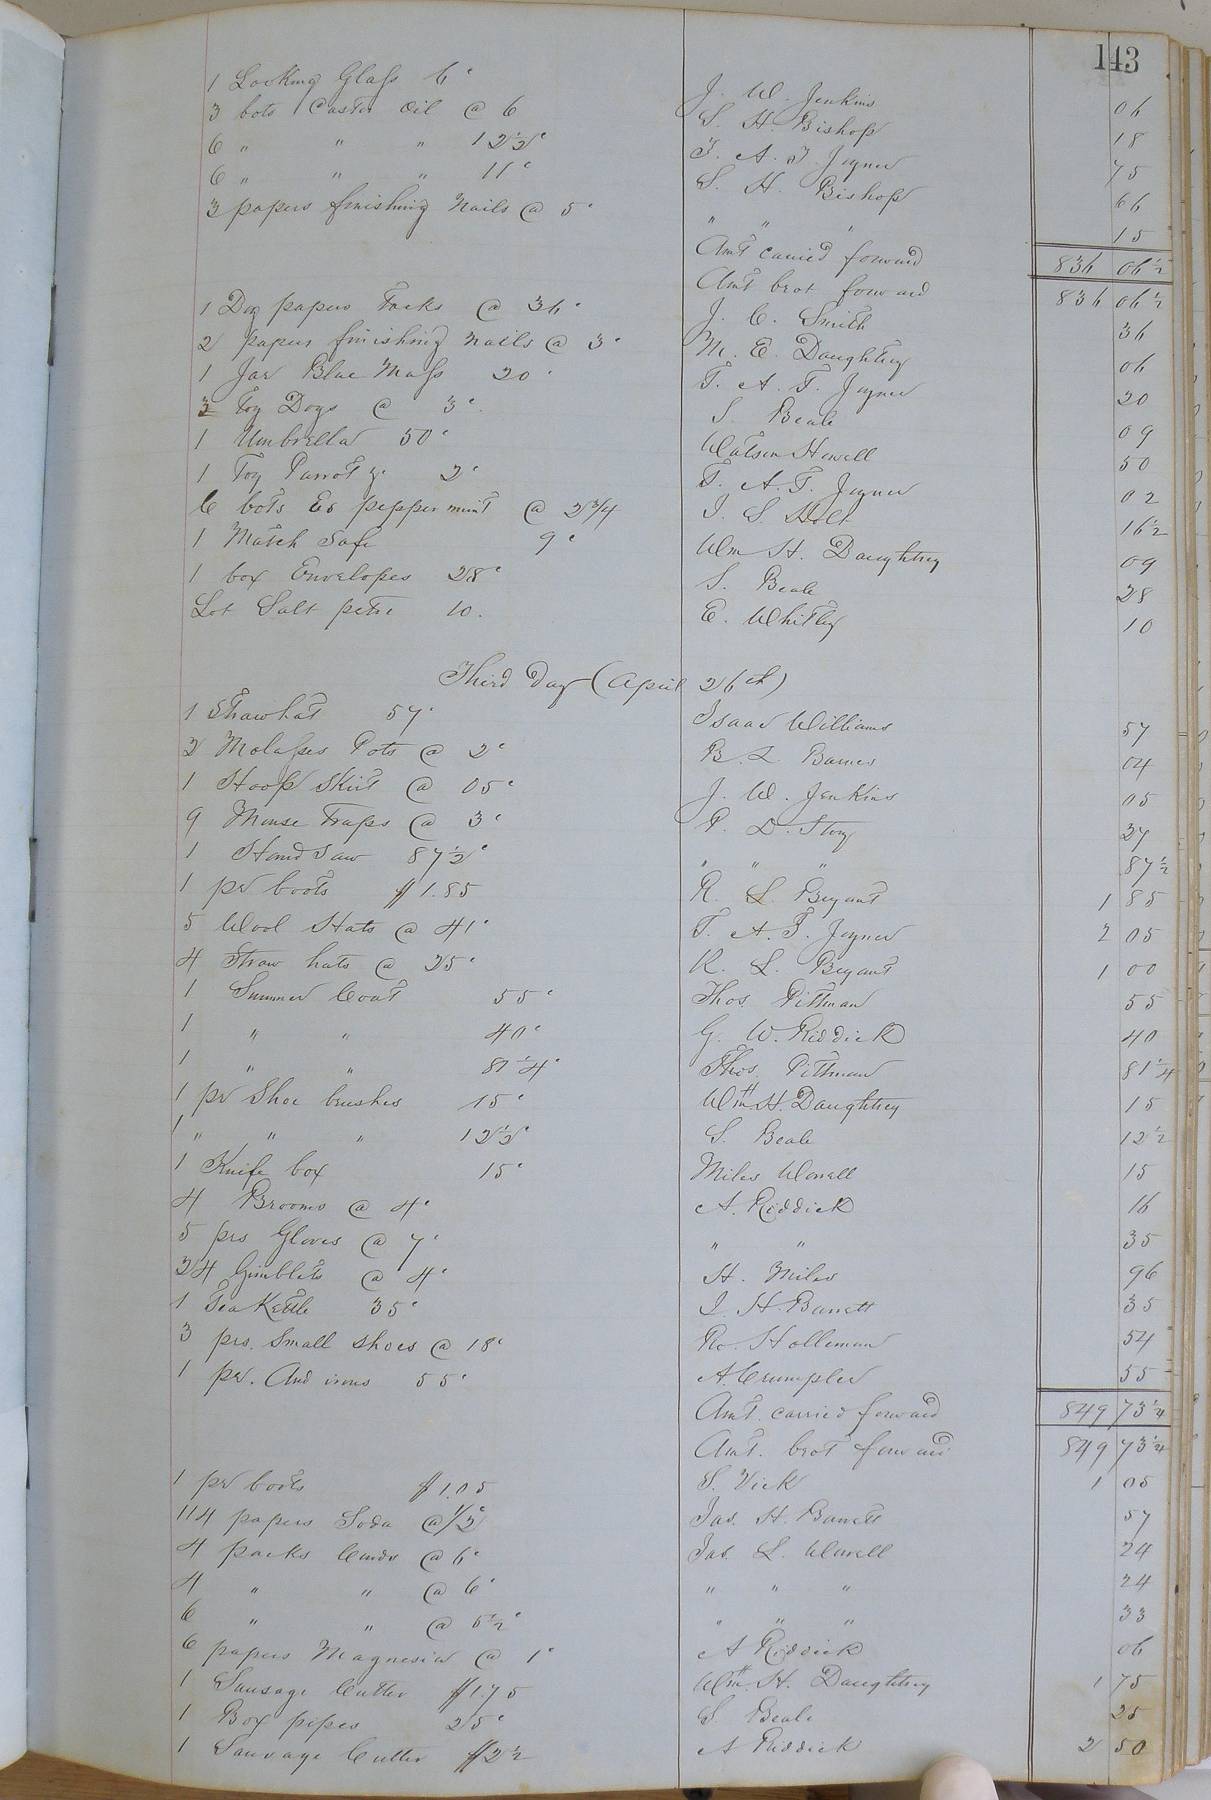 143
1 Looking Glass 6c J. W. Jenkins 06
3 bots Caster Oil @ 6 S. H. Bishop 18
6 " " " 12½c T. A. T. Joyner 75
6 " " " 11c S. H. Bishop 66
3 papers finishing Nails @ 5c " " " 15
Amt carried forward 836 06½
Amt brot forward 836 06½
1 Doz papers Tacks @ 36c J. C. Smith 36
2 papers finishing nails @ 3c M. E. Daughtrey 06
1 Jar Blue Mass 20c T. A. T. Joyner 20
3 Toy Dogs @ 3c. S. Beale 09
1 Umbrella 50c Watson Howell 50
1 Toy Parrot &c 2c T. A. T. Joyner 02
6 bots Es peppermint @ 2¾ J. S. Holt 16½
1 Match Safe 9c Wm H. Daughtrey 09
1 box Envelopes 28c S. Beale 28
Lot Salt petre 10. E. Whitley 10
Third Day (April 26th)
1 Straw hat 57c Isaac Williams 57
2 Molasses Pots @ 2c B. L Barnes 04
1 Hoop Skirt @ 05c J. W. Jenkins 05
9 Mouse Traps @ 3c P. D. Story 27
1 Hand Saw 87½c " " " 87½
1 pr boots $1.85 R. L. Bryant 1 85
5 Wool Hats @ 41c T. A. T. Joyner 2 05
4 Straw hats @ 25c R. L. Bryant 1 00
1 Summer Coat 55c Thos. Pittman 55
1 " " 40c G. W. Riddick 40
1 " " 81¼c Thos. Pittman 81¼
1 pr Shoe brushes 15c Wm H. Daughtrey 15
1 " " " 12½c S. Beale 12½
1 Knife box 15c Miles Worrell 15
4 Brooms @ 4c A. Riddick 16
5 prs Gloves @ 7c " " 35
24 Gimblets @ 4c H. Miles 96
1 Tea Kettle 35c J. H. Barrett 35
3 prs. Small shoes @ 18c Ro. Holleman 54
1 pr. And irons 55c A. Crumpler 55
Amt. carried forward 849 73¼
Amt. brot forward 849 73¼
1 pr boots $1.05 S. Vick 1 05
114 papers Soda @ ½c Jas. H. Barrett 57
4 packs Cards @ 6c Jas. L. Worrell 24
4 " " @ 6c " " " 24
6 " " @ 5½c " " " 33
6 papers Magnesia @ 1c A Riddick 06
1 Sausage Cutter $1.75 Wm. H. Daughtrey 1 75
1 Box pipes 25c S. Beale 25
1 Sausage Cutter $2½ A Riddick 2 50